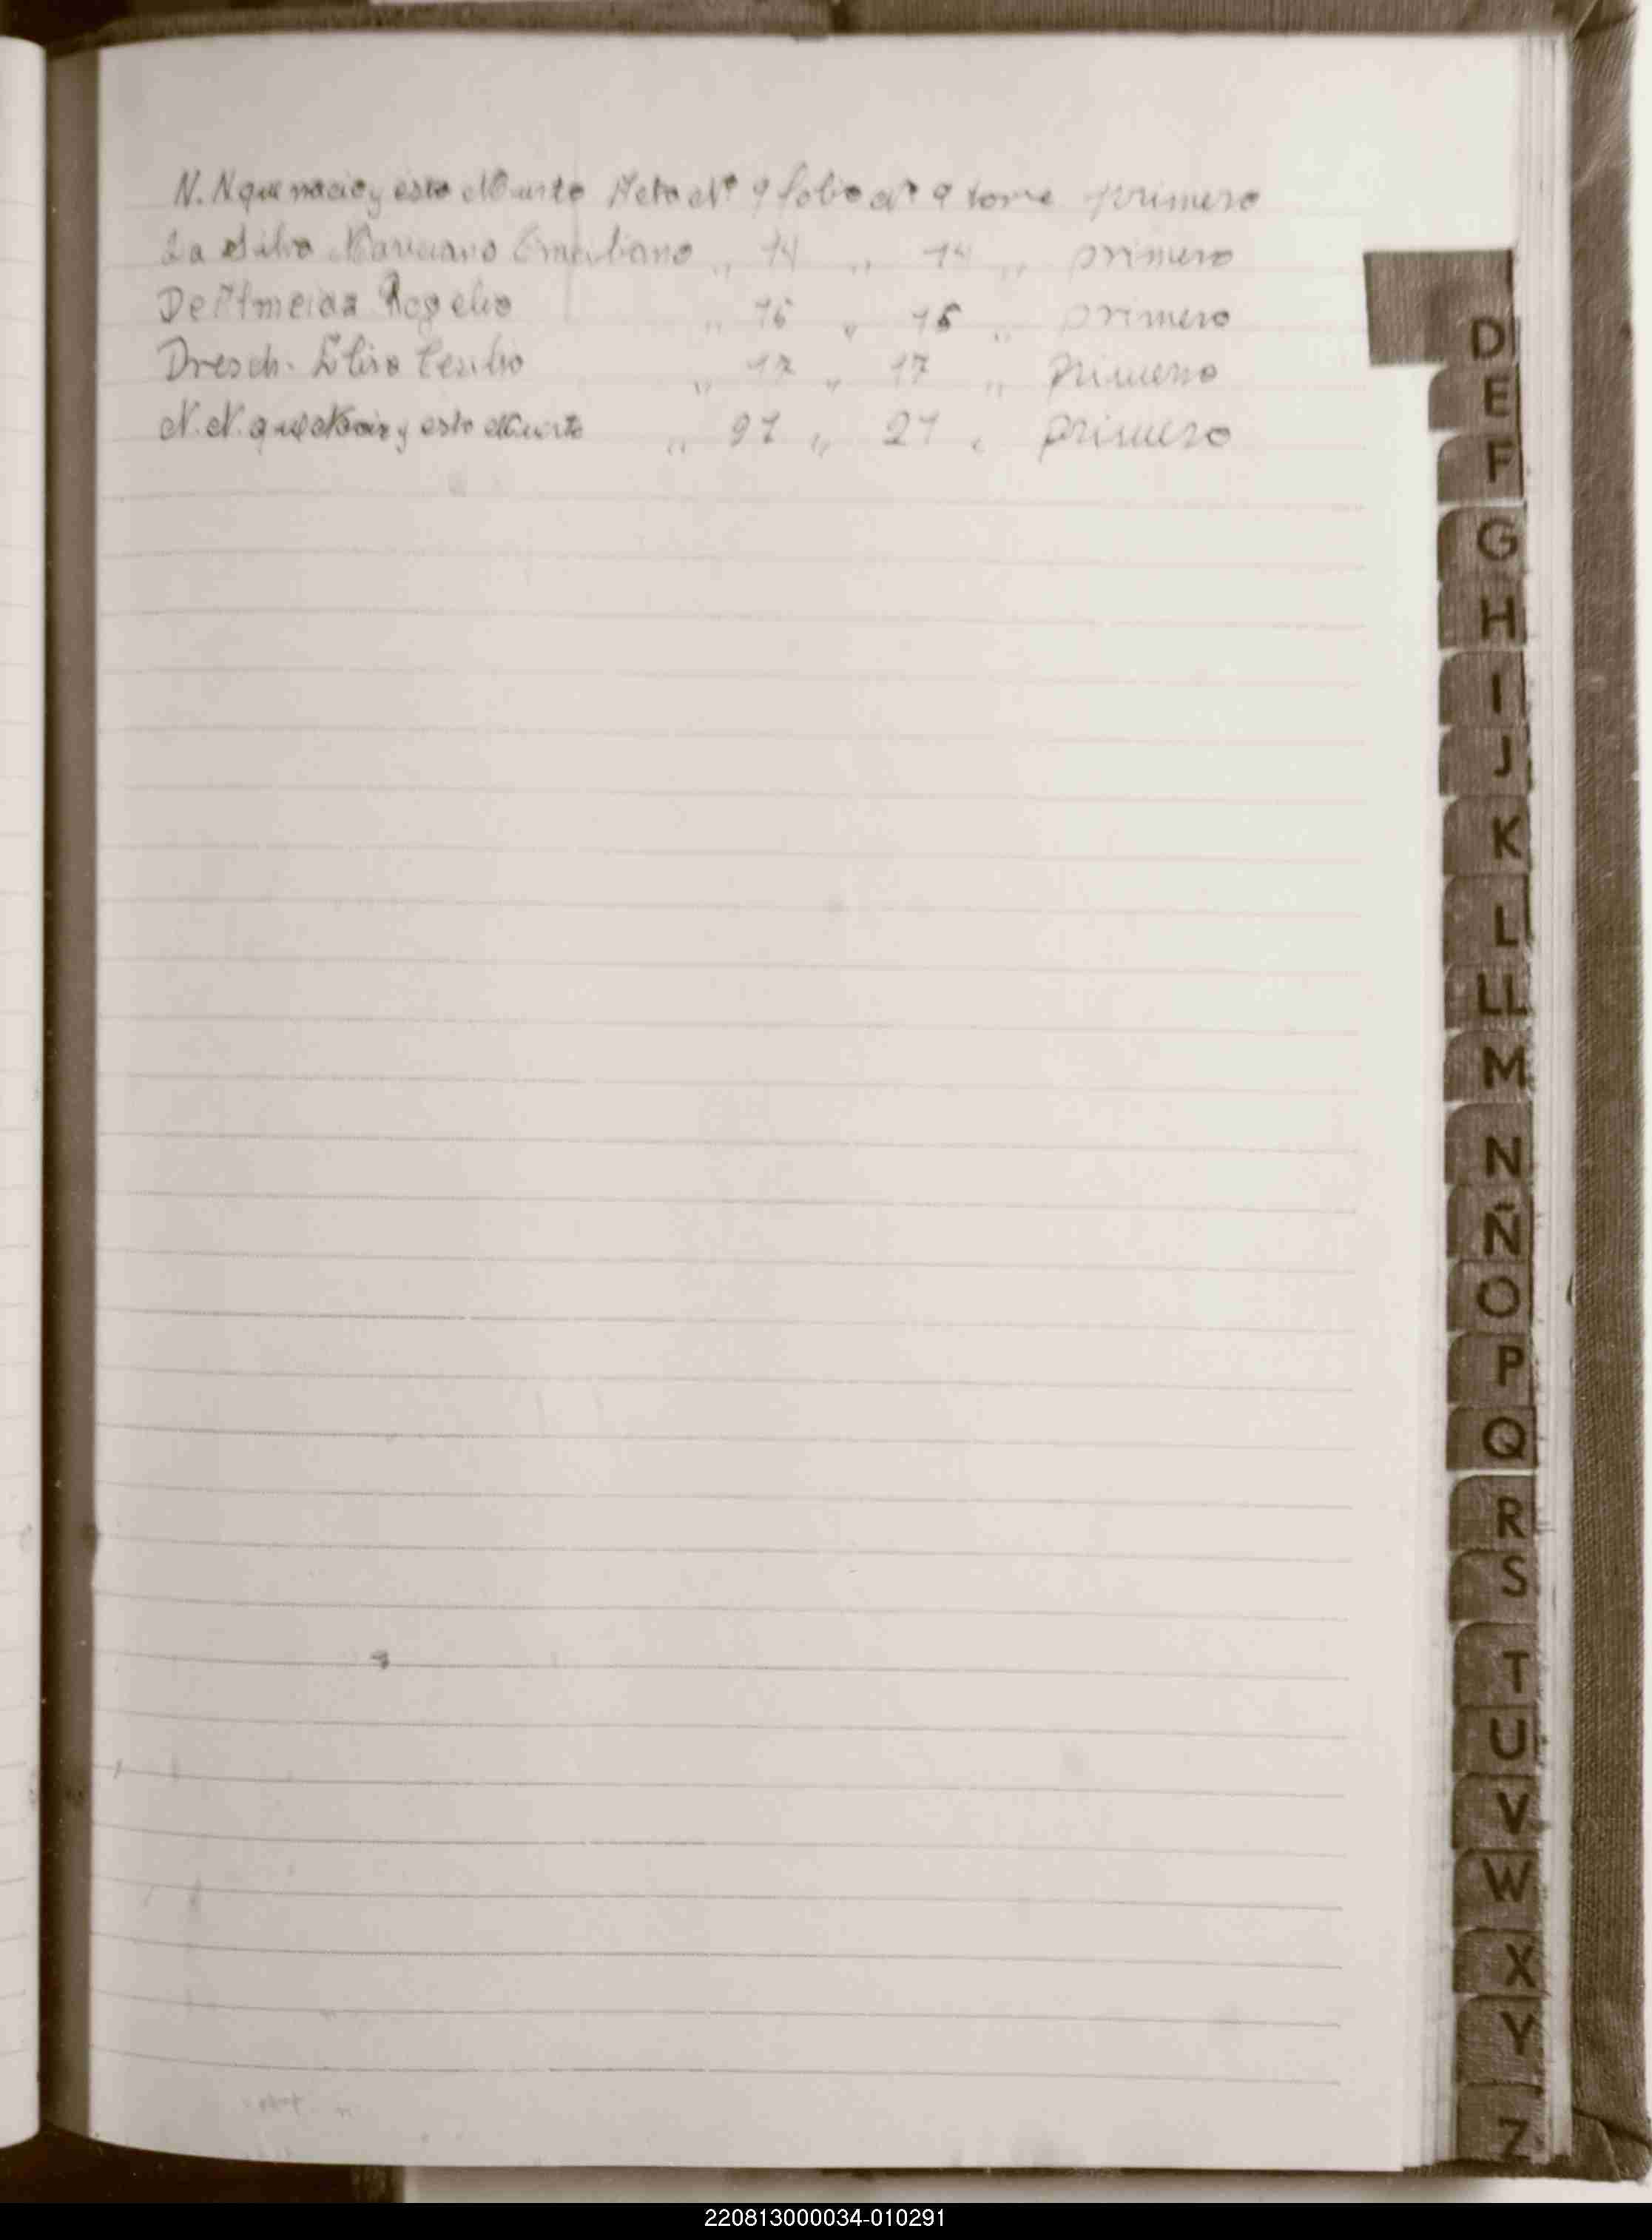 N. N que nacio y esta Muerto Acta Nº 9 folio Nº 9 tomo primero
Da Silva Marciano Graciliano " 14 " 14 " primero
De Almeida Rogelio " 15 " 15 " primero
Dresch. " 17 " 17 " primero
N. N. que y esta Muerto " 21 " 21 " primero
D
E
F
G
H
I
J
K
L
LL
M
N
Ñ
O
P
Q
R
S
T
U
V
W
X
Y
Z
220813000034-010291